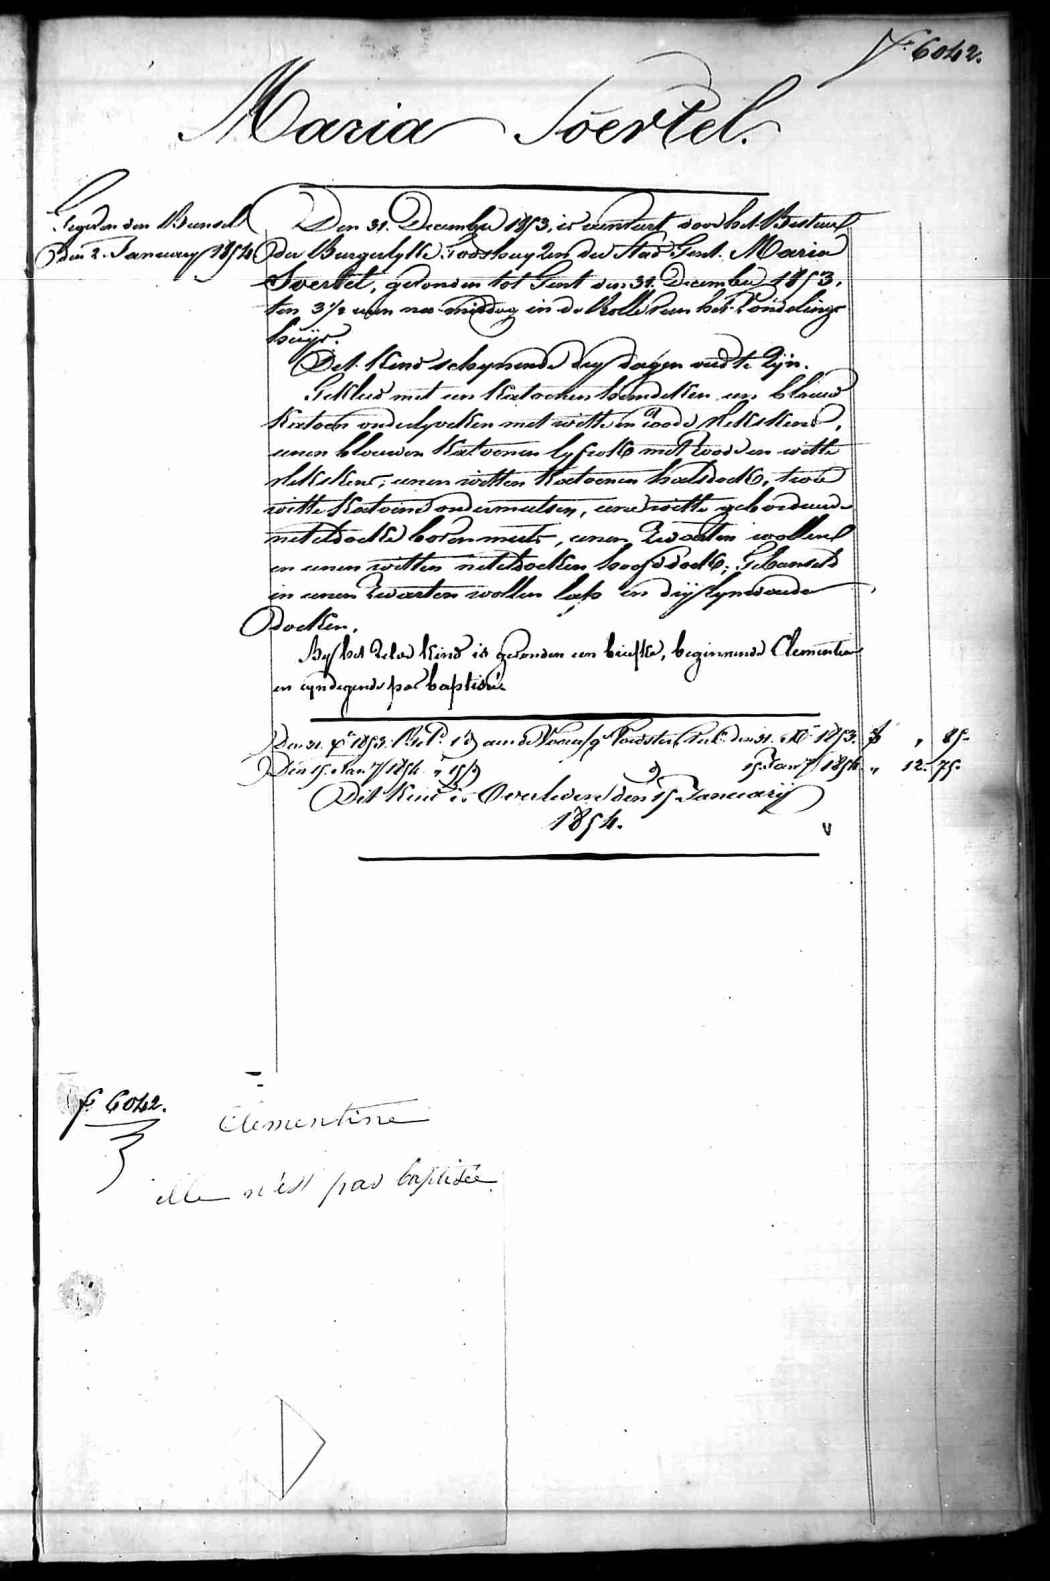 f.° 6042.
Maria Soertel.
den 2. January 1854
Den 31. December 1853, is door het Bestuur
der Burgerlyke Godshuyzen der Stad Gent. Maria
Soertel, gevonden tot Gent den 31. December 1853,
ten 3 1/2 uren na middag in de Rolle van het Vondelings
huys.
Het kind schynende dry dagen oud te zyn.
Gekleed met een katoenen hemdeken, een blauw
katoen onderlyfken met witte en roode vlekskens,
eenen blauwen katoenen lyfrok met roode en witte
vlekskens, eenen witten katoenen halsdoek, twee
witte katoene ondermutsen, eene witte geborduurde
neteldoeke bovenmuts, eenen zwarten wollen
en eenen witten neteldoeken hoofddoek; Gebonseld
in eenen zwarten wollen lap en dry lynwaede
doeken.
By het zelve kind is gevonden een briefke, beginnende Clementine
en eyndigende pas baptisée
Den 31. Xbre 1853. aen de Voedster den 31. Xbre 1853. f " 85.
Den 15. Jany 1854 " 15. Jany 1854. " 12.75.
Dit Kind is Overleden den 15 January
1854.
f.° 6042.
Clementine
elle n'est pas baptisée